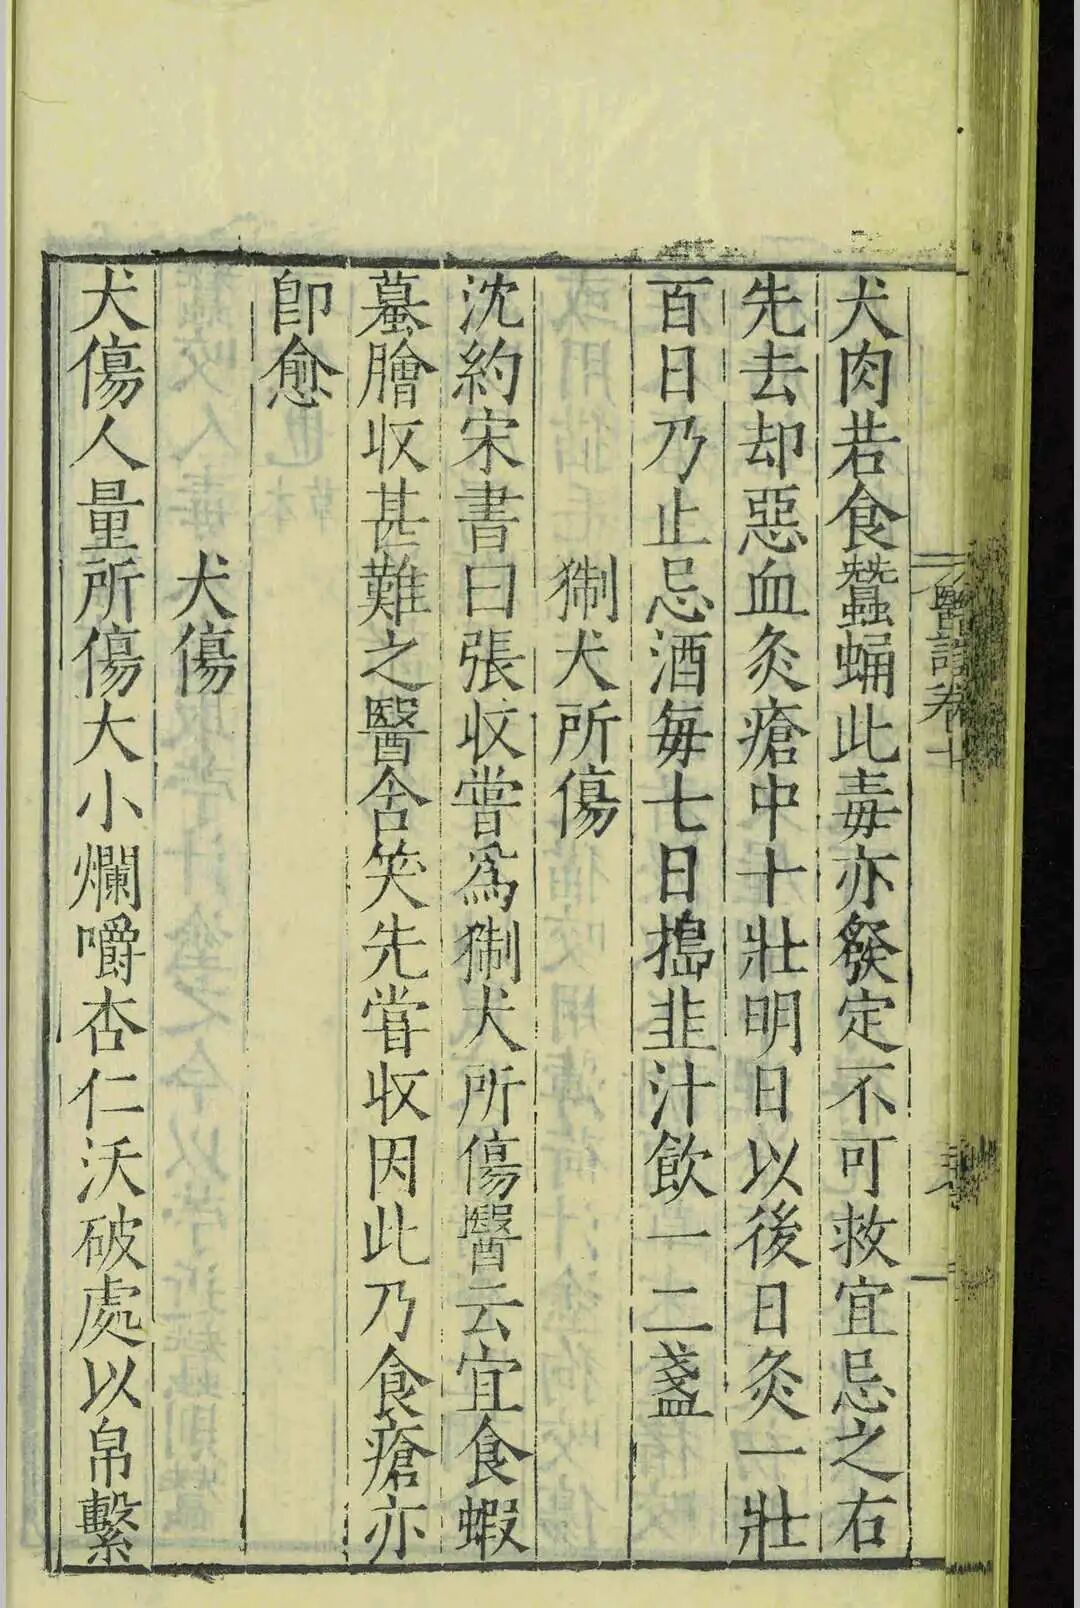 犬肉若食蠶蛹此毒亦發定不可救宜忌之右
先去却惡血灸瘡中十壯明日以後日灸一壯
百日乃止忌酒每七日搗韭汁飲一二盞
猘犬所傷
沈約宋書曰張収嘗爲猘犬所傷醫云宜食蝦
蟇膾収甚難之醫含笑先嘗収因此乃食瘡亦
卽愈
犬傷
犬傷人量所傷大小爛嚼杏仁沃破處以帛繫
醫說卷十